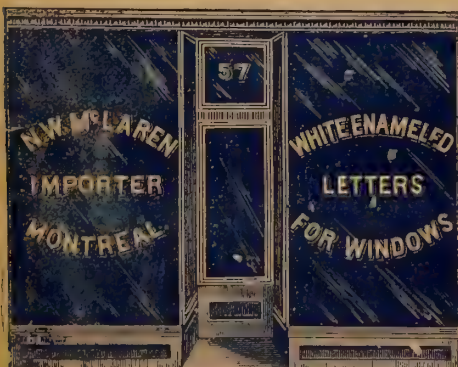 57
N.W. McLAREN
IMPORTER
MONTREAL
WHITE ENAMELED
LETTERS
FOR WINDOWS